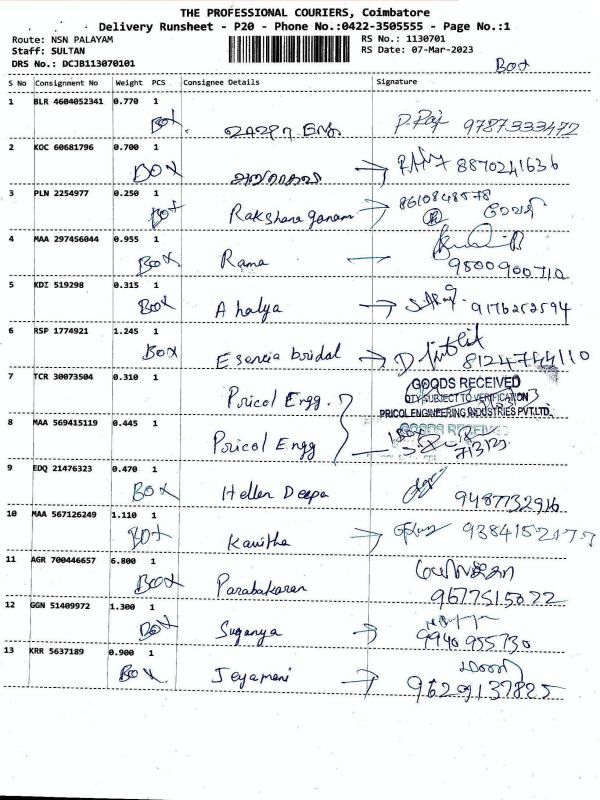 THE PROFESSIONAL COURIERS, Coimbatore
Delivery Runsheet - P20 - Phone No.:0422-3505555 - Page No.:1
Route: NSN PALAYAM RS No.: 1130701
Staff: SULTAN RS Date: 07-Mar-2023
DRS No.: DCJB113070101
Box
S No Consignment No Weight PCS Consignee Details Signature
1 BLR 4604052341 0.770 1
Box P. Raj 9787333472
2 KOC 60681796 0.700 1
BOX 8870241636
3 PLN 2254977 0.250 1 8610848578
Box Rakshana ganam
4 MAA 297456044 0.955 1
Box Rama 9500900710
5 KDI 519298 0.315 1
Box Ahalya 9176252594
6 RSP 1774921 1.245 1
Box Esencia bridal 8124744110
7 TCR 30073504 0.310 1 GOODS RECEIVED
Pricol Engg. QTY SUBJECT TO VERIFICATION
PRICOL ENGINEERING INDUSTRIES PVT.LTD.
8 MAA 569415119 0.445 1 GOODS RECEIVED
Pricol Engg 7/3/23
9 EDQ 21476323 0.470 1
Box Hellen Deepa 9487732916
10 MAA 567126249 1.110 1
Box Kavitha
11 AGR 700446657 6.800 1
Box Parabakaran 9677515022
12 GGN 51409972 1.300 1
Box Suganya 9940955730
13 KRR 5637189 0.900 1
Box Jeyamani 9629137825